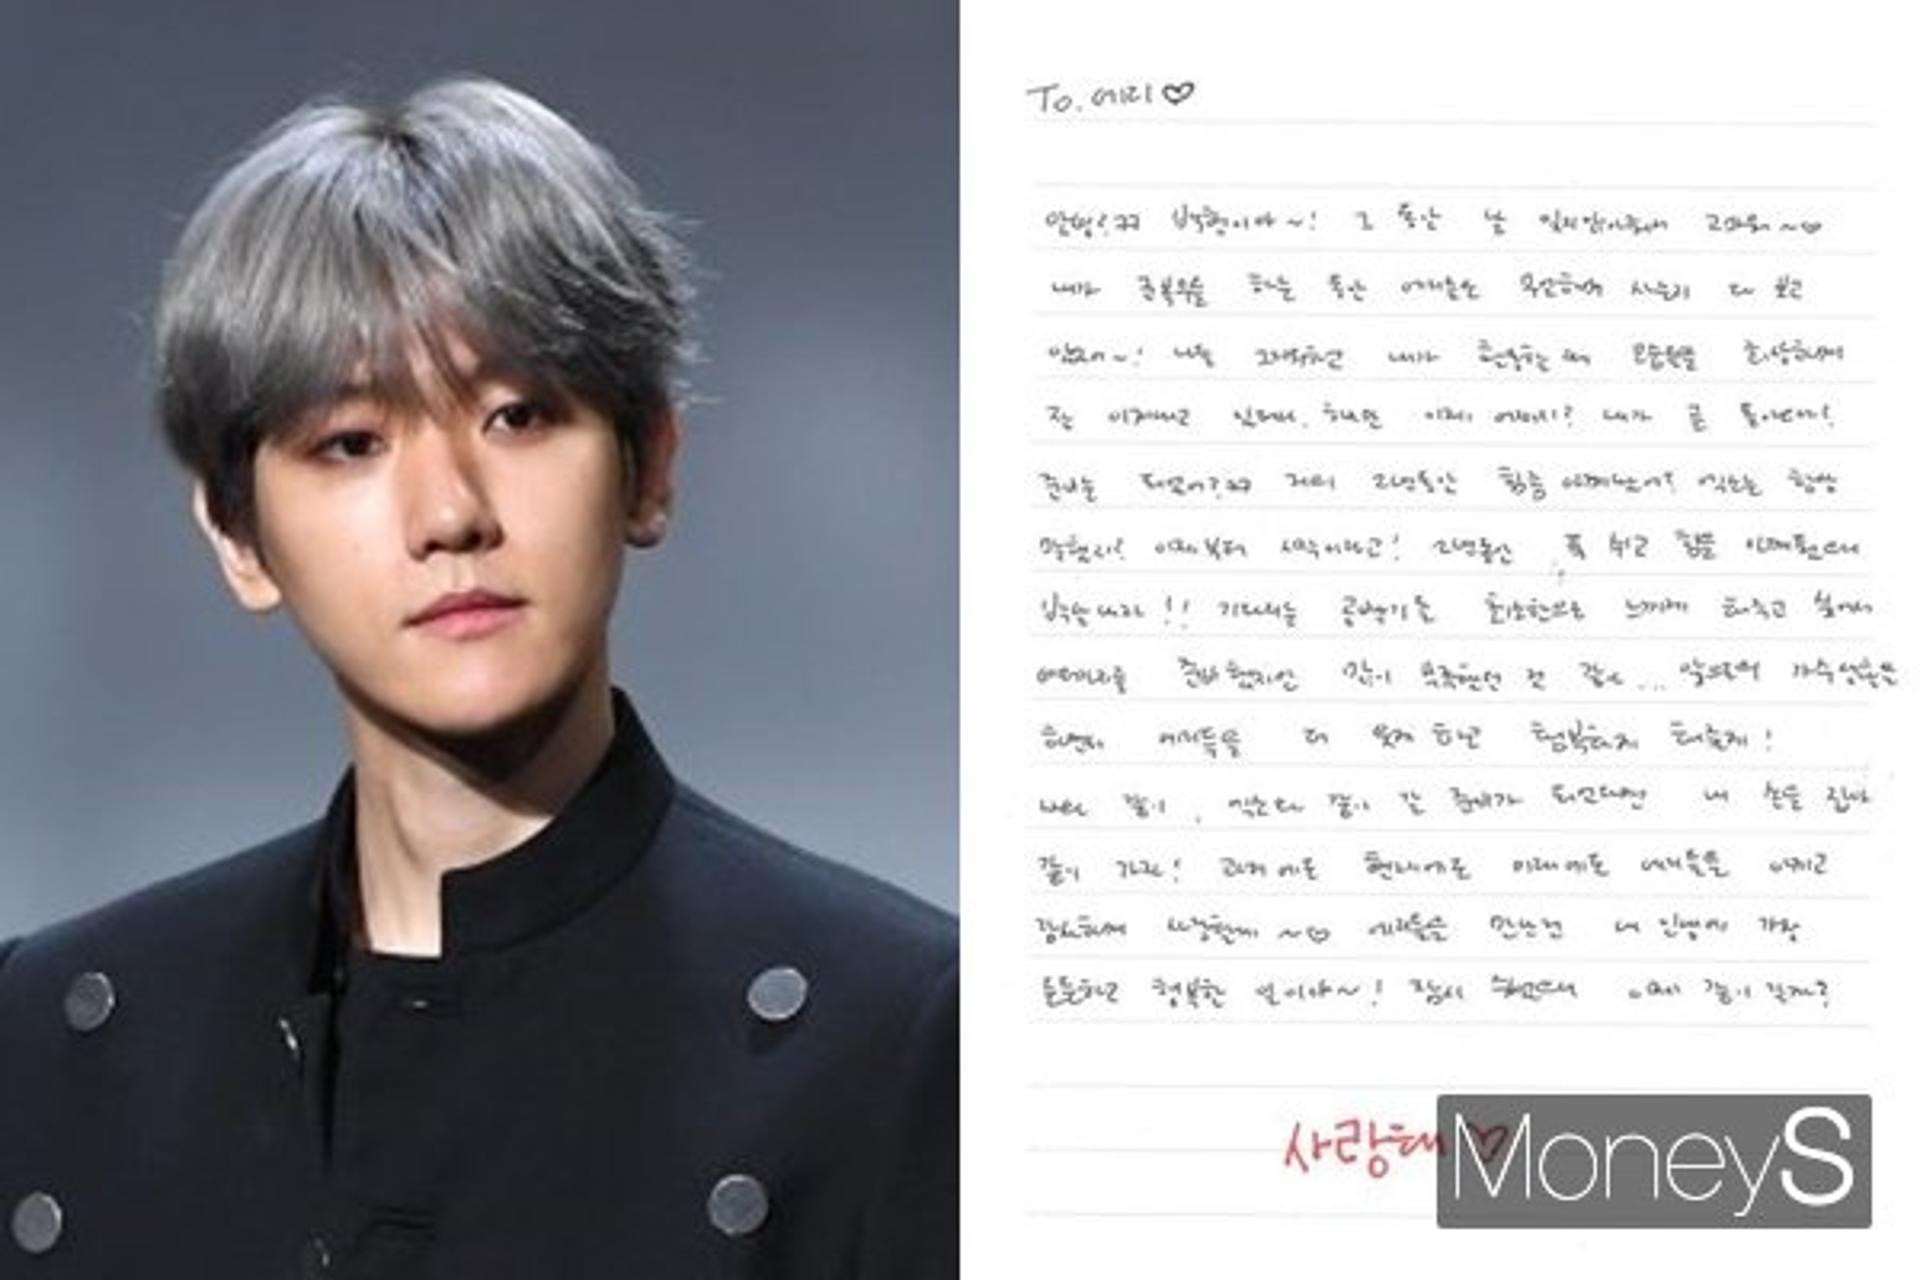 To. 에리♡
안녕?ㅋㅋ 백현이야~! 그 동안 날 잊지않아줘서 고마워~♡
내가 공복무를 하는 동안 에리들은 무한하게 사는지 다 보고
있었어~! 나를 그리워하면 내가 활동하는 때 모습들을 회상하며
잘 이겨내고 있더라. 하지만 이제 어쩌지? 내가 곧 돌아온다!
준비는 되었어?ㅋㅋ 거의 2년동안 힘듬 이겨냈어? 엑소는 항상
말했지! 이제부터 시작이라고! 2년동안 푹 쉬고 힘을
기다리는 공백기를 최소한으로 느끼게 해주고 싶어서
준비했지만 많이 부족했던 것 같네... 앞으로의 가수생활을
하면서 에리들을 더 웃게 하고 행복하게 해줄게!
나와 같이, 엑소와 같이 갈 준비가 되었다면 내 손을 잡아
같이 가자! 과거에도 현재에도 미래에도 에리들을 아끼고
감사하며 사랑할게~♡ 에리들을 만난건 내 인생에 가장
든든하고 행복한 일이야~! 잠시 이제 같이 갈까?
사랑해♡
MoneyS